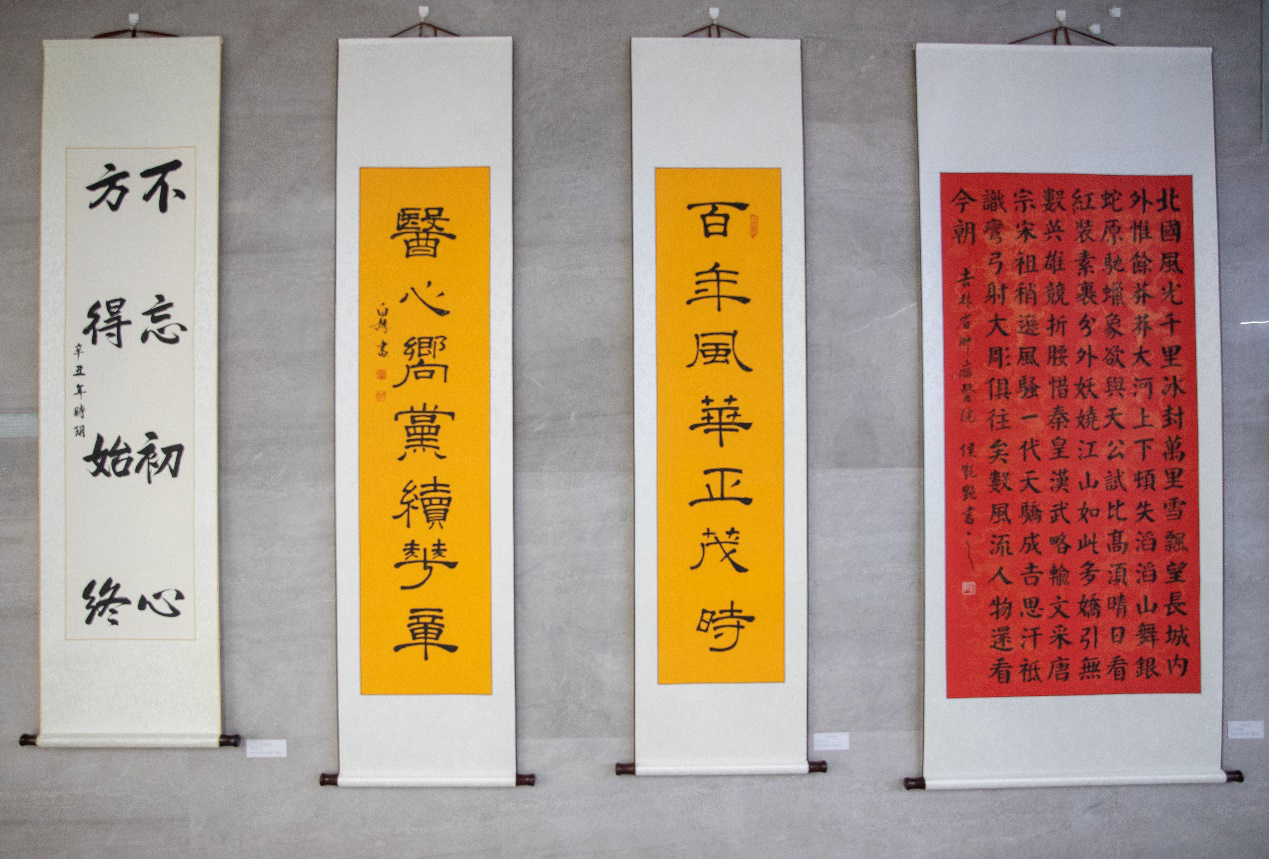 北國風光千里冰封萬里雪飄望長城内
外惟餘莽莽大河上下頓失滔滔山舞銀
蛇原馳蠟象欲與天公試比髙須晴日看
紅裝素裹分外妖嬈江山如此多嬌引無
數英雄競折腰惜秦皇漢武略輸文采唐
宗宋祖稍遜風騷一代天驕成吉思汗祗
識彎弓射大彫俱往矣數風流人物還看
今朝
吉林省肿瘤醫院 侯艷艷書
百年風華正茂時
醫心嚮黨續華章
不忘初心
方得始終
辛丑年時玥